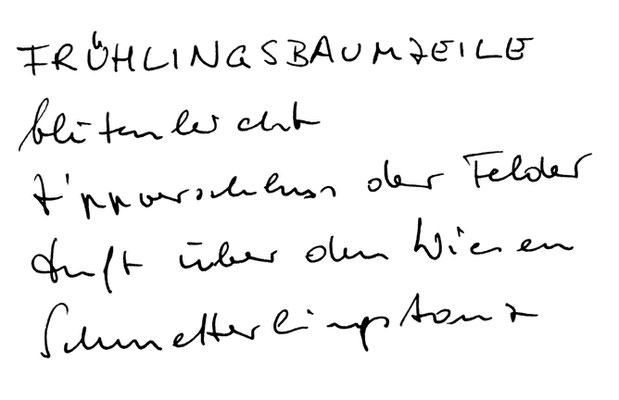 FRÜHLINGSBAUMZEILE
blütenleicht
Zippverschluss der Felder
duft über den Wiesen
Schmetterlingstanz